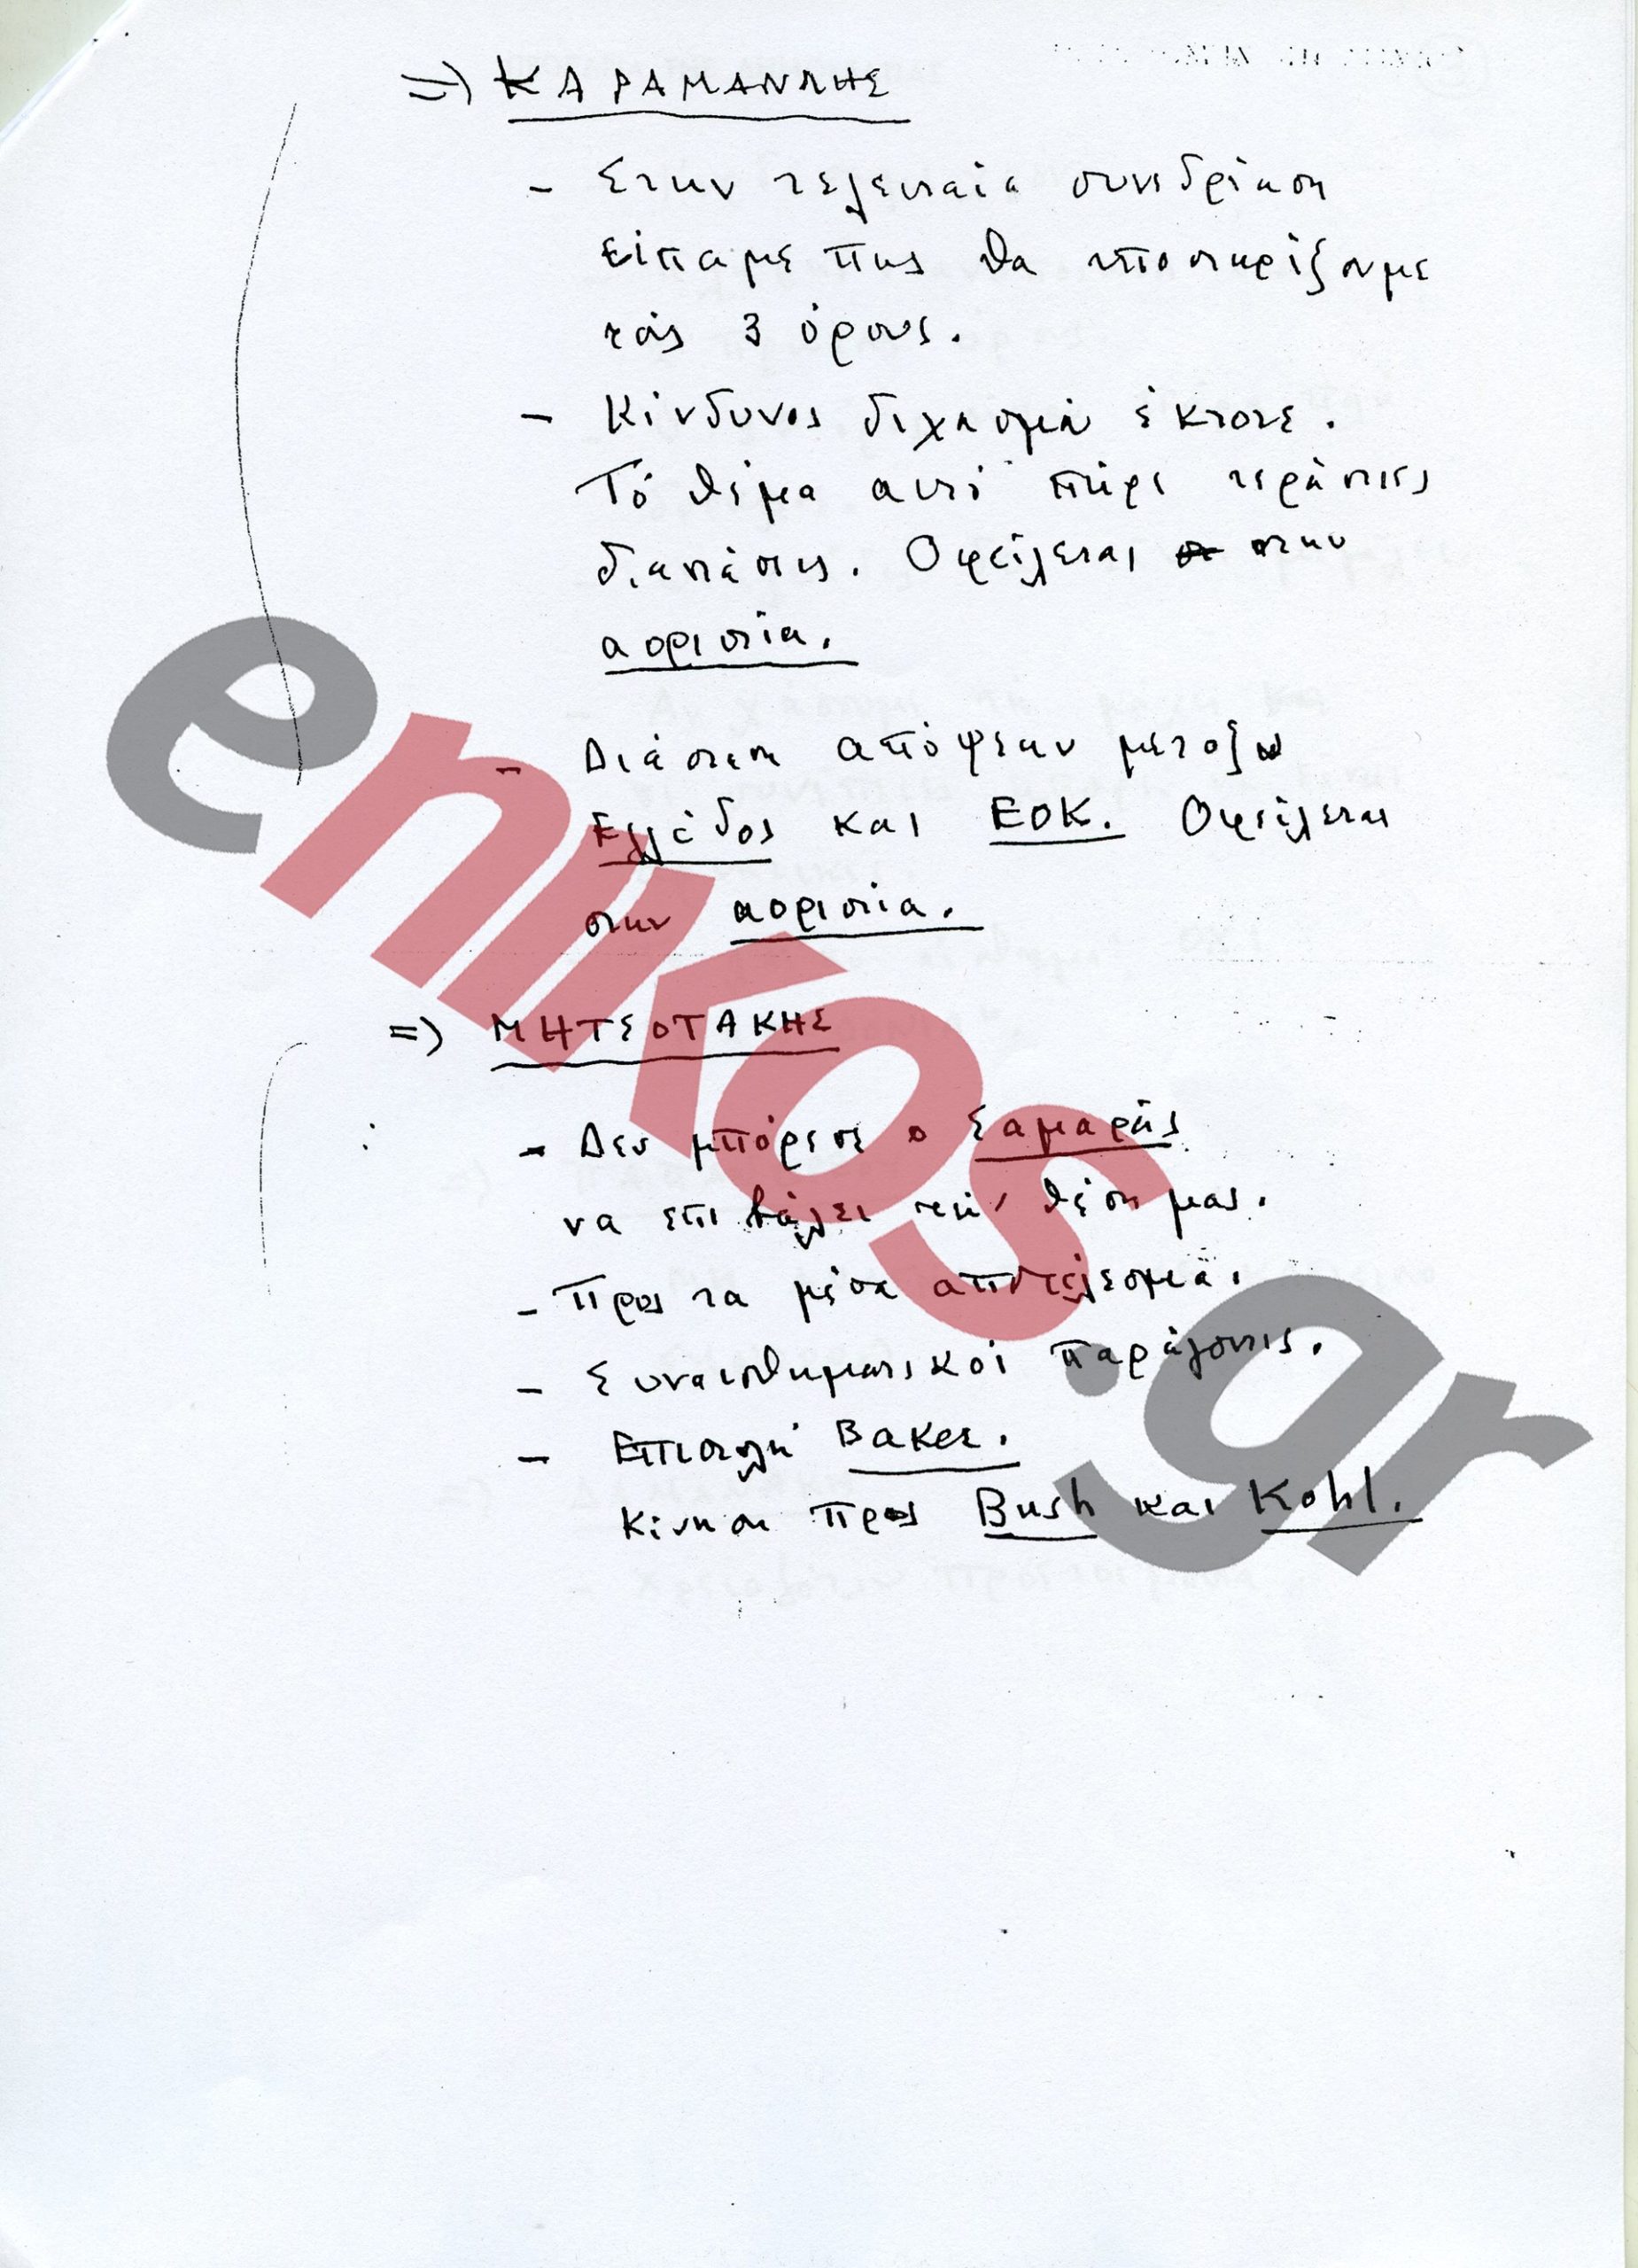 => ΚΑΡΑΜΑΝΛΗΣ
- Στην τελευταία συνεδρίαση
είπαμε πως θα υποστηρίξουμε
τούς 3 όρους.
- Κίνδυνος διχασμού έκτοτε.
Τό θέμα αυτό πήρε τεράστιες
διαστάσεις. Οφείλεται στην
αοριστία.
- Διάσταση απόψεων μεταξύ
Ελλάδος και ΕΟΚ. Οφείλεται
στην αοριστία.
=> ΜΗΤΣΟΤΑΚΗΣ
- Δεν μπόρεσε ο Σαμαράς
να επιβάλει τήν θέση μας.
- Προς τα μέσα αποτέλεσμα.
- Συναισθηματικοί παράγοντες.
- Επιστολή Baker.
Κίνηση προς Bush και Kohl.
enikos.gr